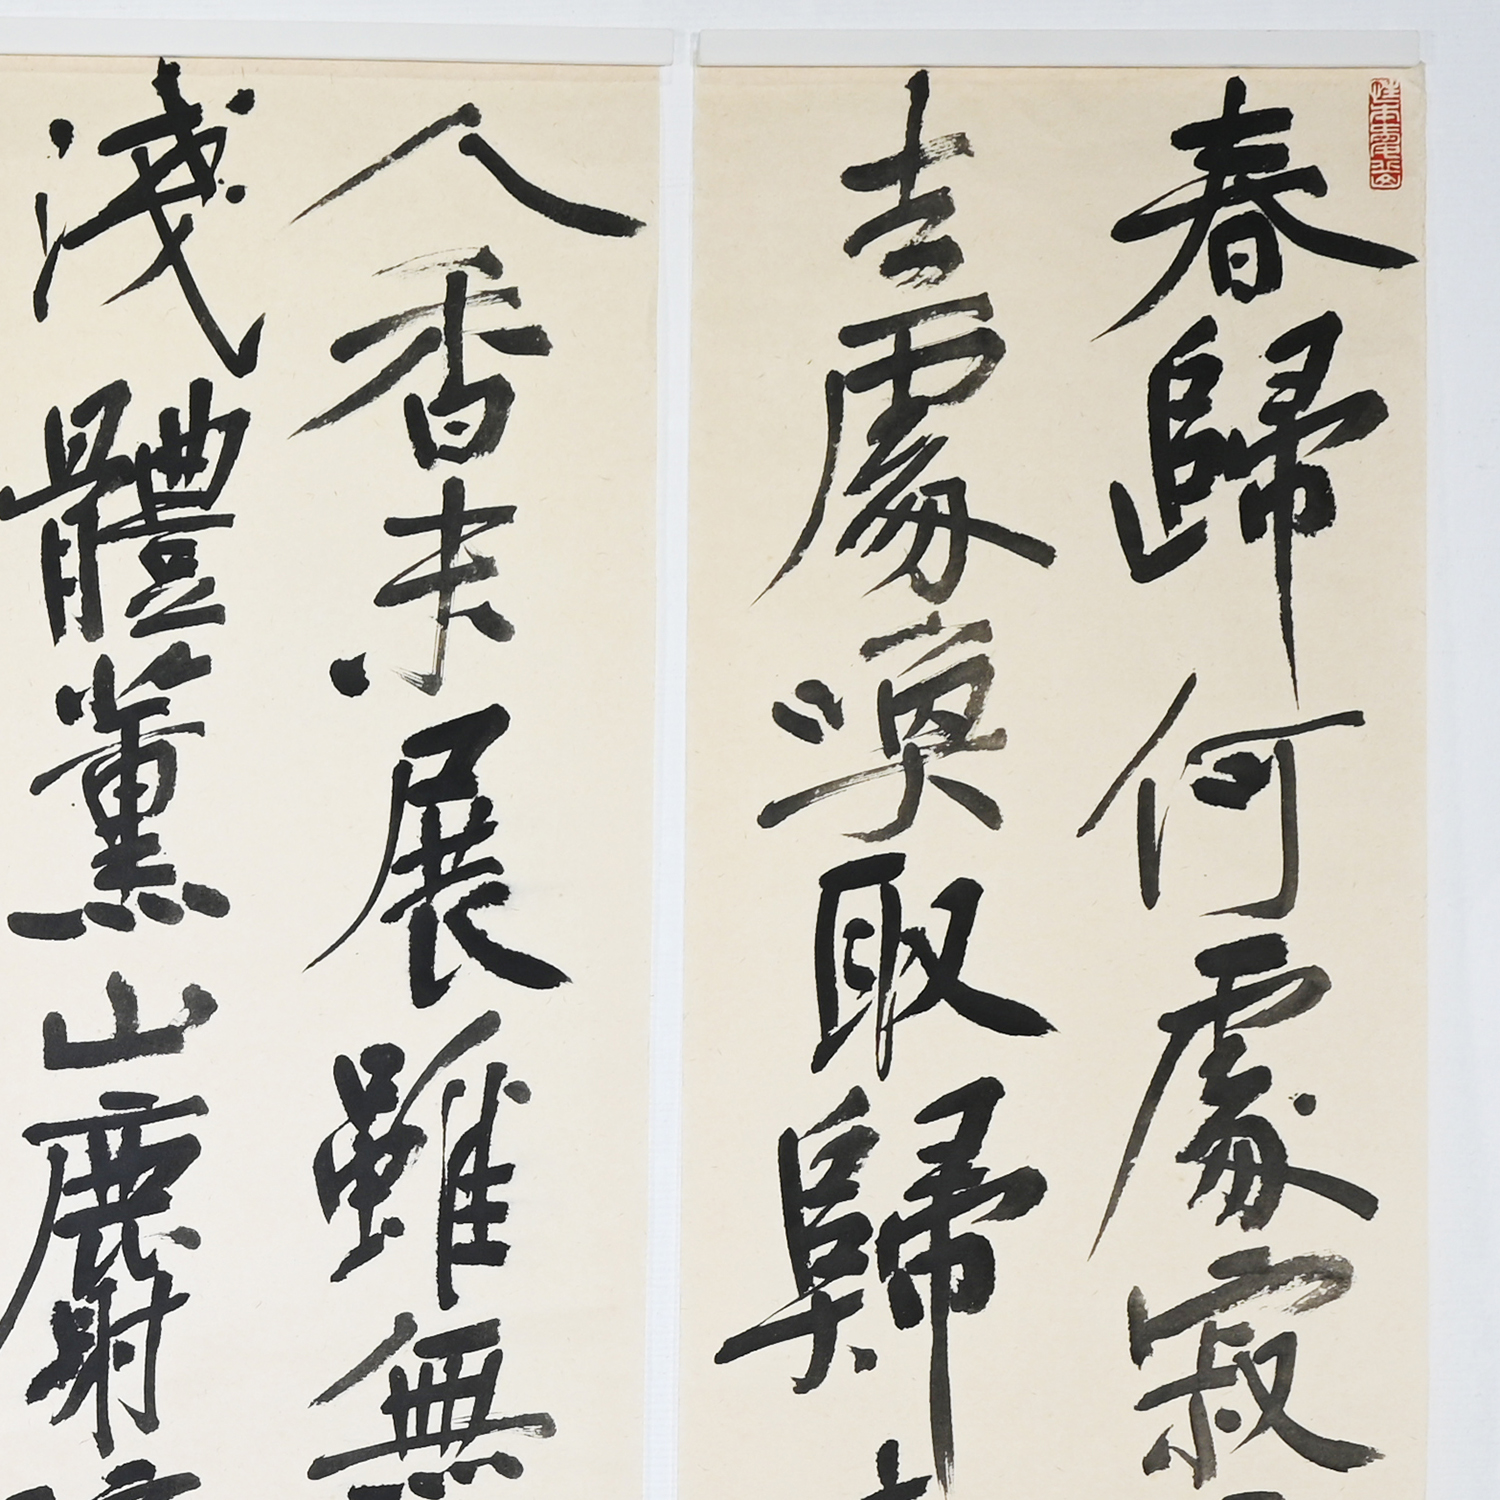 春歸何處寂
去處喚取歸
人香未展雖無
淺體薰山麝